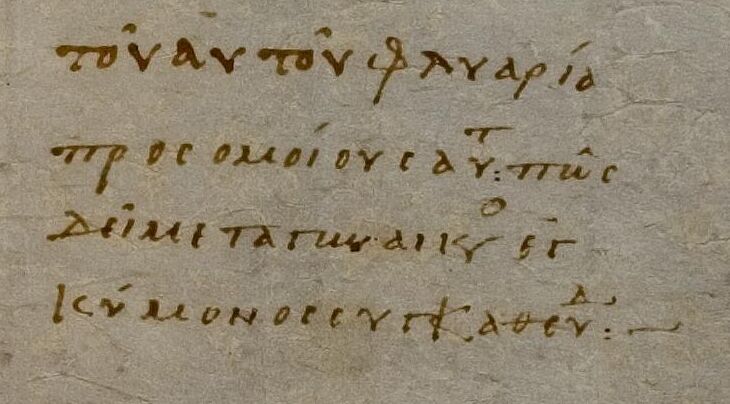 τοῦ αυτοῦ φλυαρία
προς ομοίους αὐτ: πῶς
δεῖ μετα γυναικο ἐγ
κύμονος συγκαθευδ: